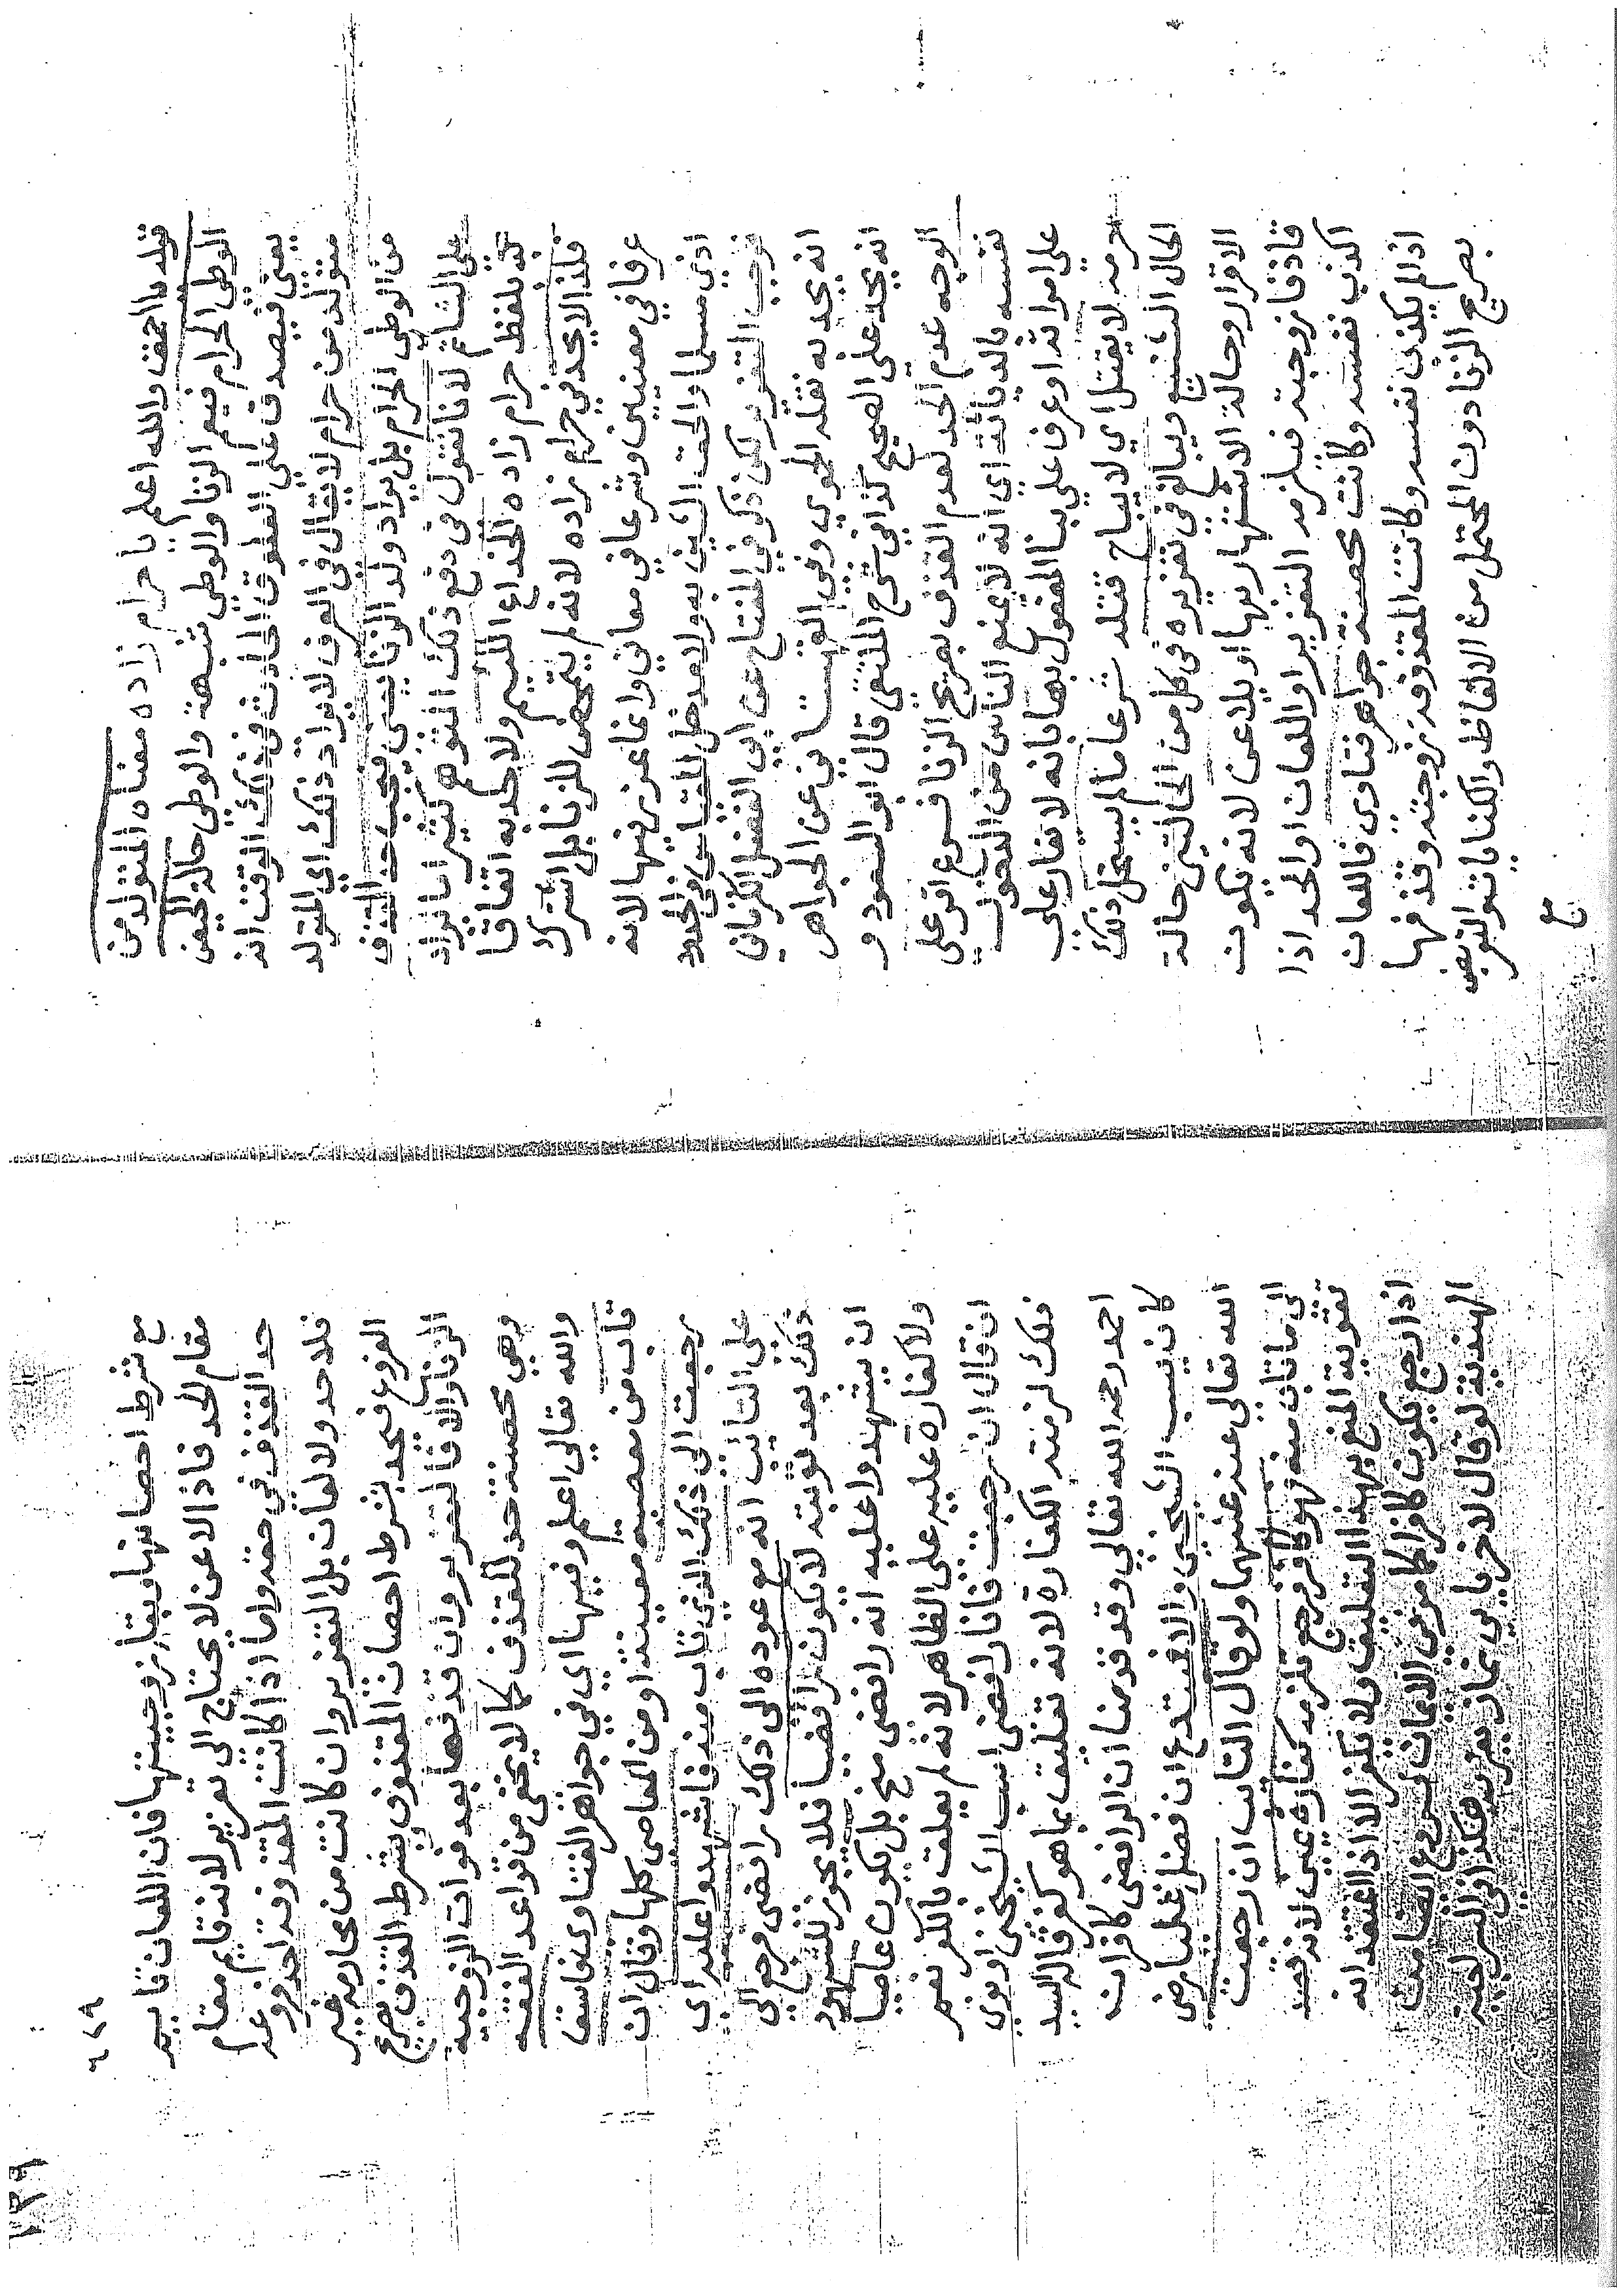 فقلد يا احمق والله اعلم يا حرام زاده معناه المتولد من
الوطى الحرام فيعم الزنا والوطى شبهة والوطى حالة الحيض
يعنى فيصدق على العلوق الحادث في ذلك الوقت انه
متولد من حرام لا يقال في العرف لا يراد ذلك اي المتولد
من الوطى الحرام بل يراد ولد الزنا يعنى فيجب حد القذف
على الشاتم لانا نقول في دفع ذلك التوهم كثيرا ما يراد
به بلفظ حرام زاده الخداع اللئيم ولا حد به اتفاقا
فلذا لا يحد في حرام زاده لانه لم يتمحض للزنا بل اشترك
عرفا في معنيين وشرعا في معاني وانما عزر فيها لانه
اذى مسلما والحق الشين به ولا مدخل للقياس في الحدود
فوجب التعزير لكن ذكر في المفتاح عن ابي الفضل الكرماني
انه يحد به نقله الحموي وفي القهستاني عن الجواهر
انه يحد على الصحيح كذا في شرح الملتقى قال ابو السعود و
الوجه عدم الحد لعدم القذف بصريح الزنا فروع اقر على
نفسه بالدياثة اي انه لا يمنع الناس من الدخول
على امراته او عرف على بنا المفعول بها بانه لا يغار على
حرمه لا يقتل اي لا يباح قتله شرعا ما لم يستحل ذلك
الحال الشنيع ويبالغ في تعزيره في كل من الحالتين حالة
الاقرار وحالة الاشتهار بها او يلاعن لانه يكون
قاذفا زوجته فيلزمه التعزير او اللعان او الحد اذا
اكذب نفسه وكانت محصنة جواهر فتاوى فاللعان
اذا لم يكذب نفسه وكانت المقذوفة زوجته وقذفها
بصريح الزنا دون المحتمل من الالفاظ والكنايات والتعريض
مع
مع شرط احصانها وبقا زوجيتها فان اللعان قايم
مقام الحد فاذا لاعن لا يحتاج الى تعزير لانه قام مقام
حد القذف في حقه واما اذا كانت المقذوفة احد فروعه
فلا حد ولا لعان بل التعزير وان كانت من محارمه غير
الفروع فيحد بشرط احصان المقذوف وبشرط القذف بصريح
الزنا والا فالتعزير وان قذفها بعد فوات الزوجيه
وهي محصنة حد للقذف كما لا يخفى من قواعد الفقه
والله تعالى اعلم وفيها اي في جواهر الفتاوى فاسق
تاب من معصيه معينة او من المعاصي كلها وقال ان
رجعت الى ذلك الذي تاب منه فاشهدوا عليه اي
على التائب انه مع عوده الى ذلك رافضي فرجع الى
ذلك بعد توبته لا يكون رافضيا فلا يجوز للشهود
ان يشهدوا عليه انه رافضي منح بل يكون عاصيا
ولا كفارة عليه على الظاهر لانه لم يعلق بالكفر نعم
ان قال ان رجعت فانا رافضي اسب الشيخين او نوى
ذلك لزمته الكفارة لانه تعليق بما هو كفر قاله السيد
احمد رحمه الله تعالى وقد قدمنا ان الرافضي كافر ان
كان يسب الشيخين والا فمبتدع ان فضل عليا رضى
الله تعالى عنه عنهما ولو قال التائب ان رجعت
الى ما تاب منه فهو كافر فرجع تلزمه كفارة يمين لانه قصد
تقوية المنع بهذا التعليق ولا يكفر الا اذا اعتقد انه
اذا رجع يكون كافرا كما مر في الايمان
الهندية لو قال لاخر يا بي نماز يعزر هكذا في السراجية
٦٧٩